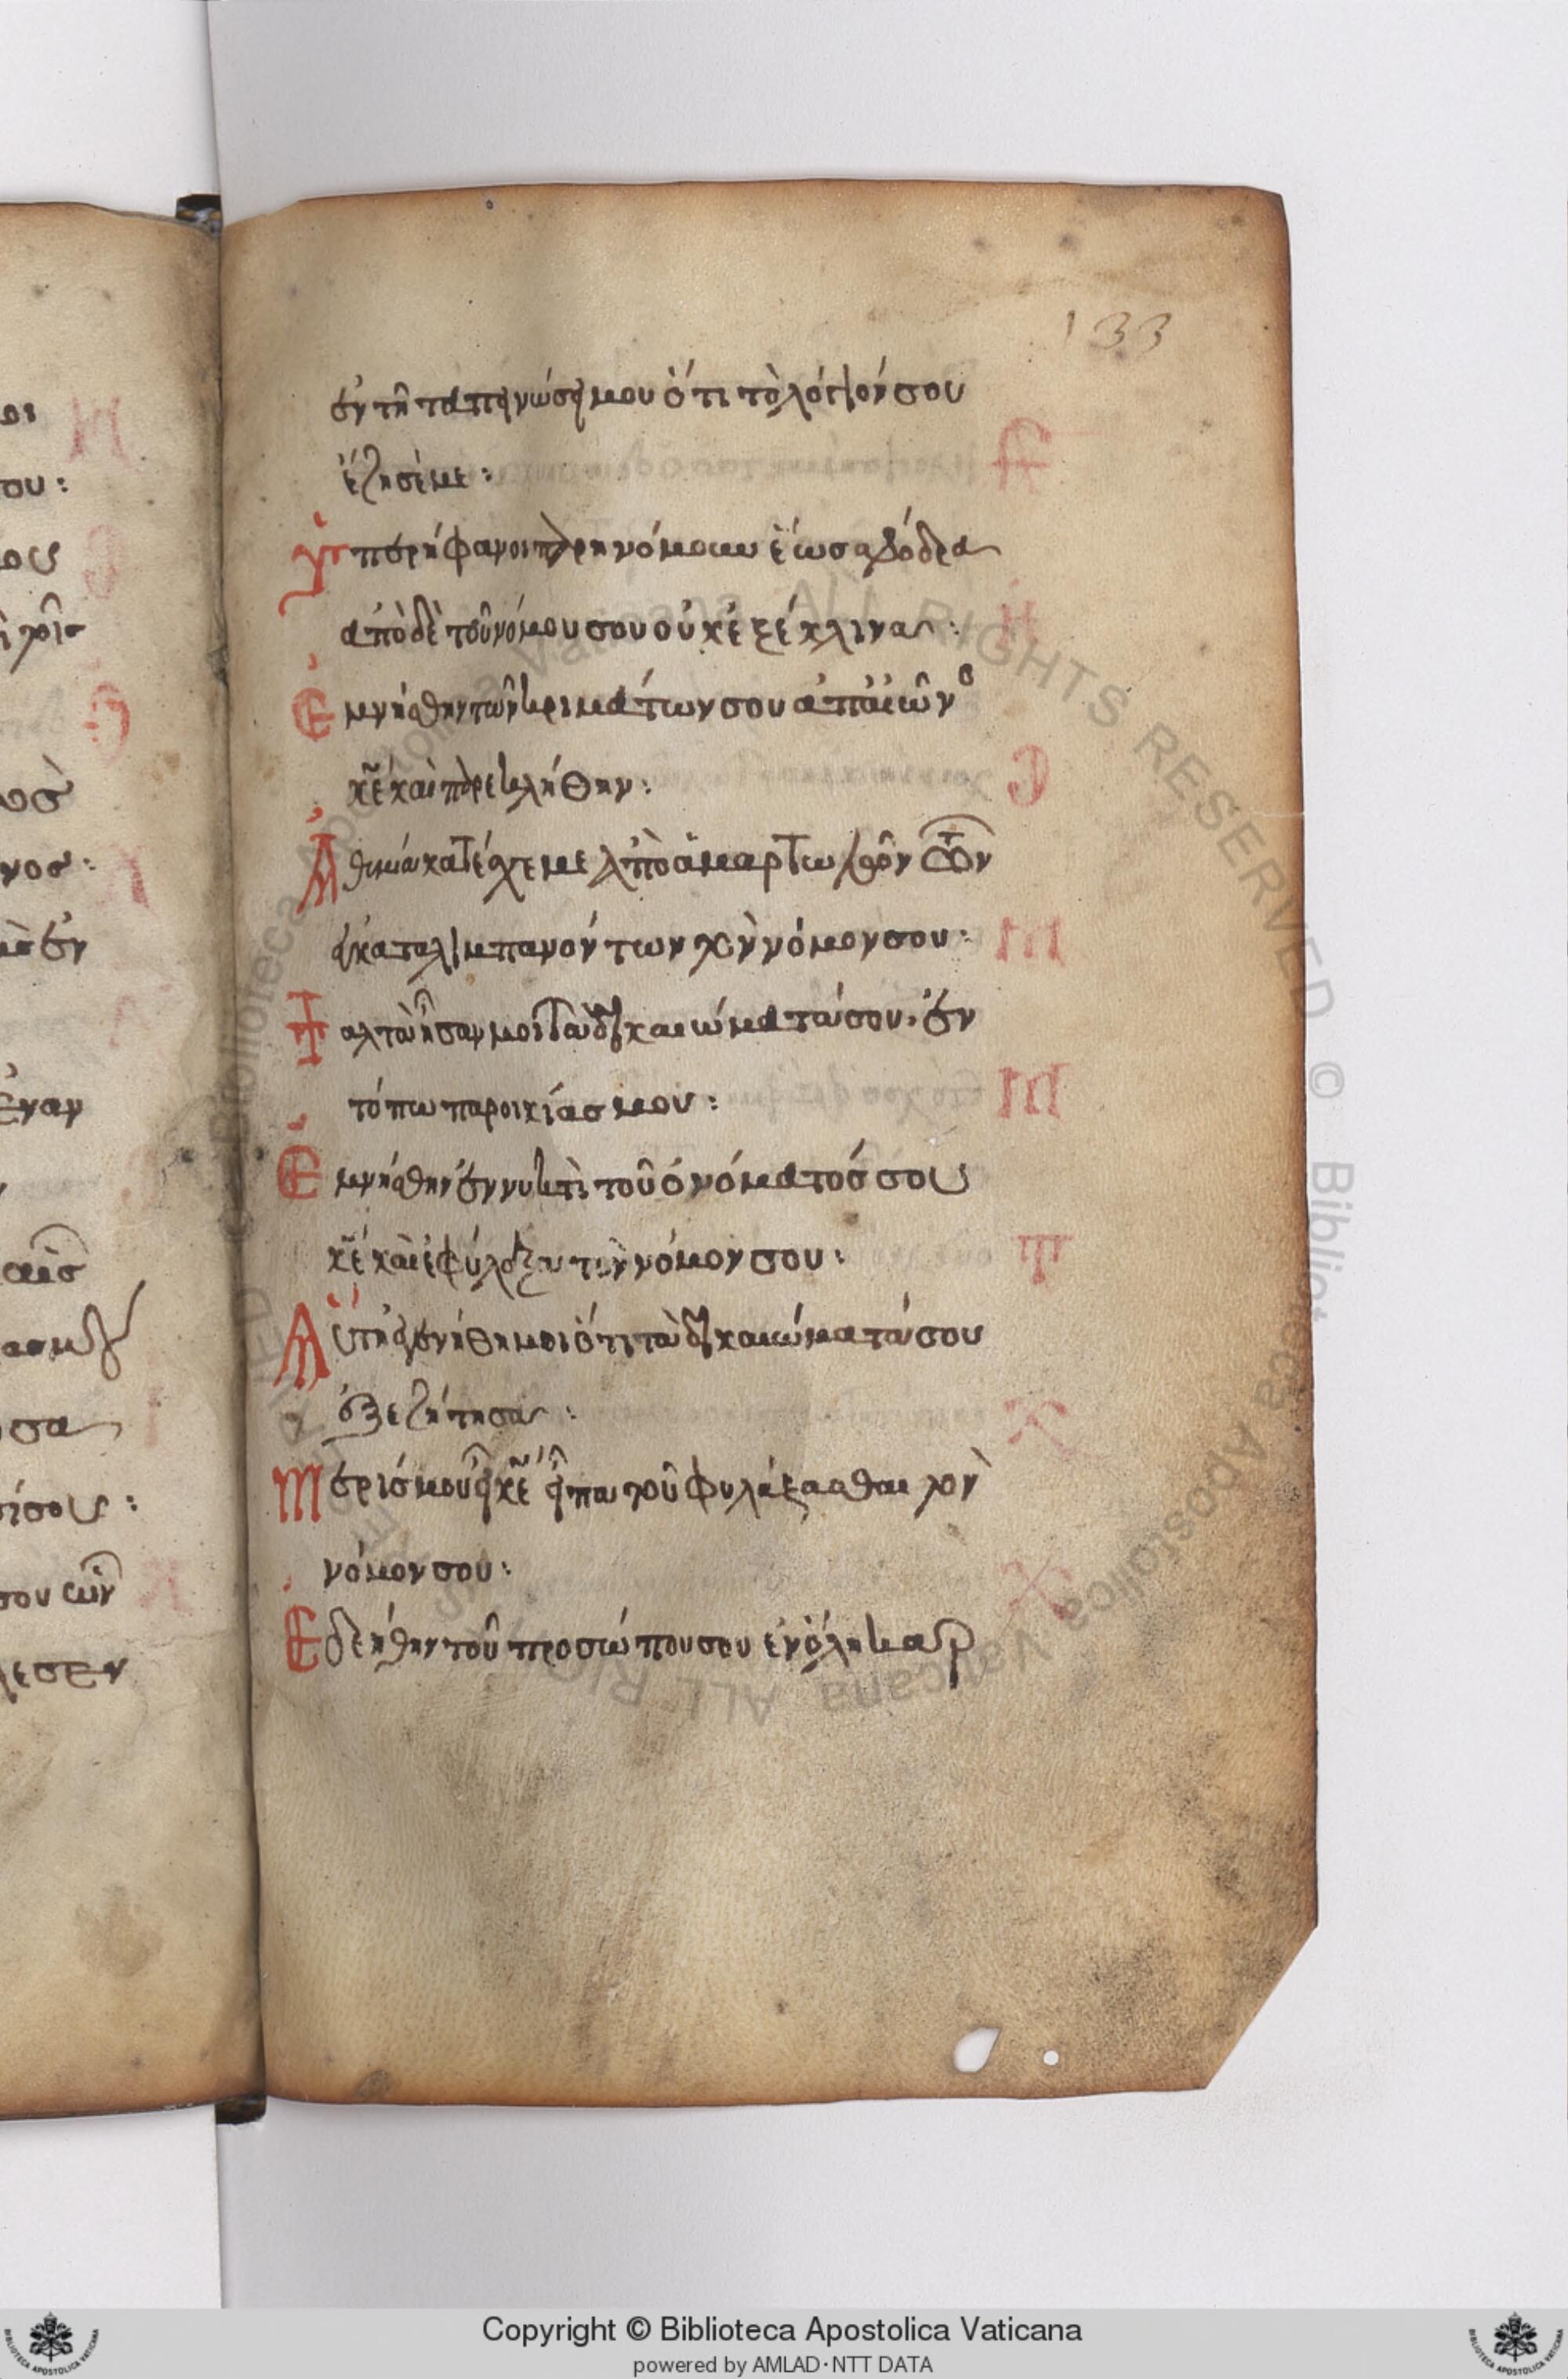 133
ἐν τῆ ταπεινώσει μου ὅτι τὸ λόγιόν σου
ἔζησέ με:
Ὑπερήφανοι παρηνόμουν ἕως σφόδρα
ἀπὸ δὲ τοῦ νόμου σου οὐκ ἐξέκλινα:
Ἐμνήσθην τῶν κριμάτων σου ἀπ' αἰῶνο
κε καὶ παρεκλήθην:
Ἀθυμία κατέσχε με ἀπὸ ἁμαρτωλῶν τῶν
ἐγκαταλιμπανόντων τὸν νόμον σου:
Ψαλτὰ ἦσαν μοι τὰ δικαιώματά σου. ἐν
τόπω παροικίας μου:
Ἐμνήσθην ἐν νυκτὶ τοῦ ὀνόματός σου
κε καὶ ἐφύλαξα τὸν νόμον σου:
Αὕτη ἐγενήθη μοι ὅτι τὰ δικαιώματά σου
ἐξεζήτησα:
Μερίς μου εἶ κε εἶπα τοῦ φυλάξασθαι τὸν
νόμον σου:
Ἐδεήθην τοῦ προσώπου σου ἐν ὅλη καρ
Copyright © Biblioteca Apostolica Vaticana
powered by AMLAD·NTT DATA